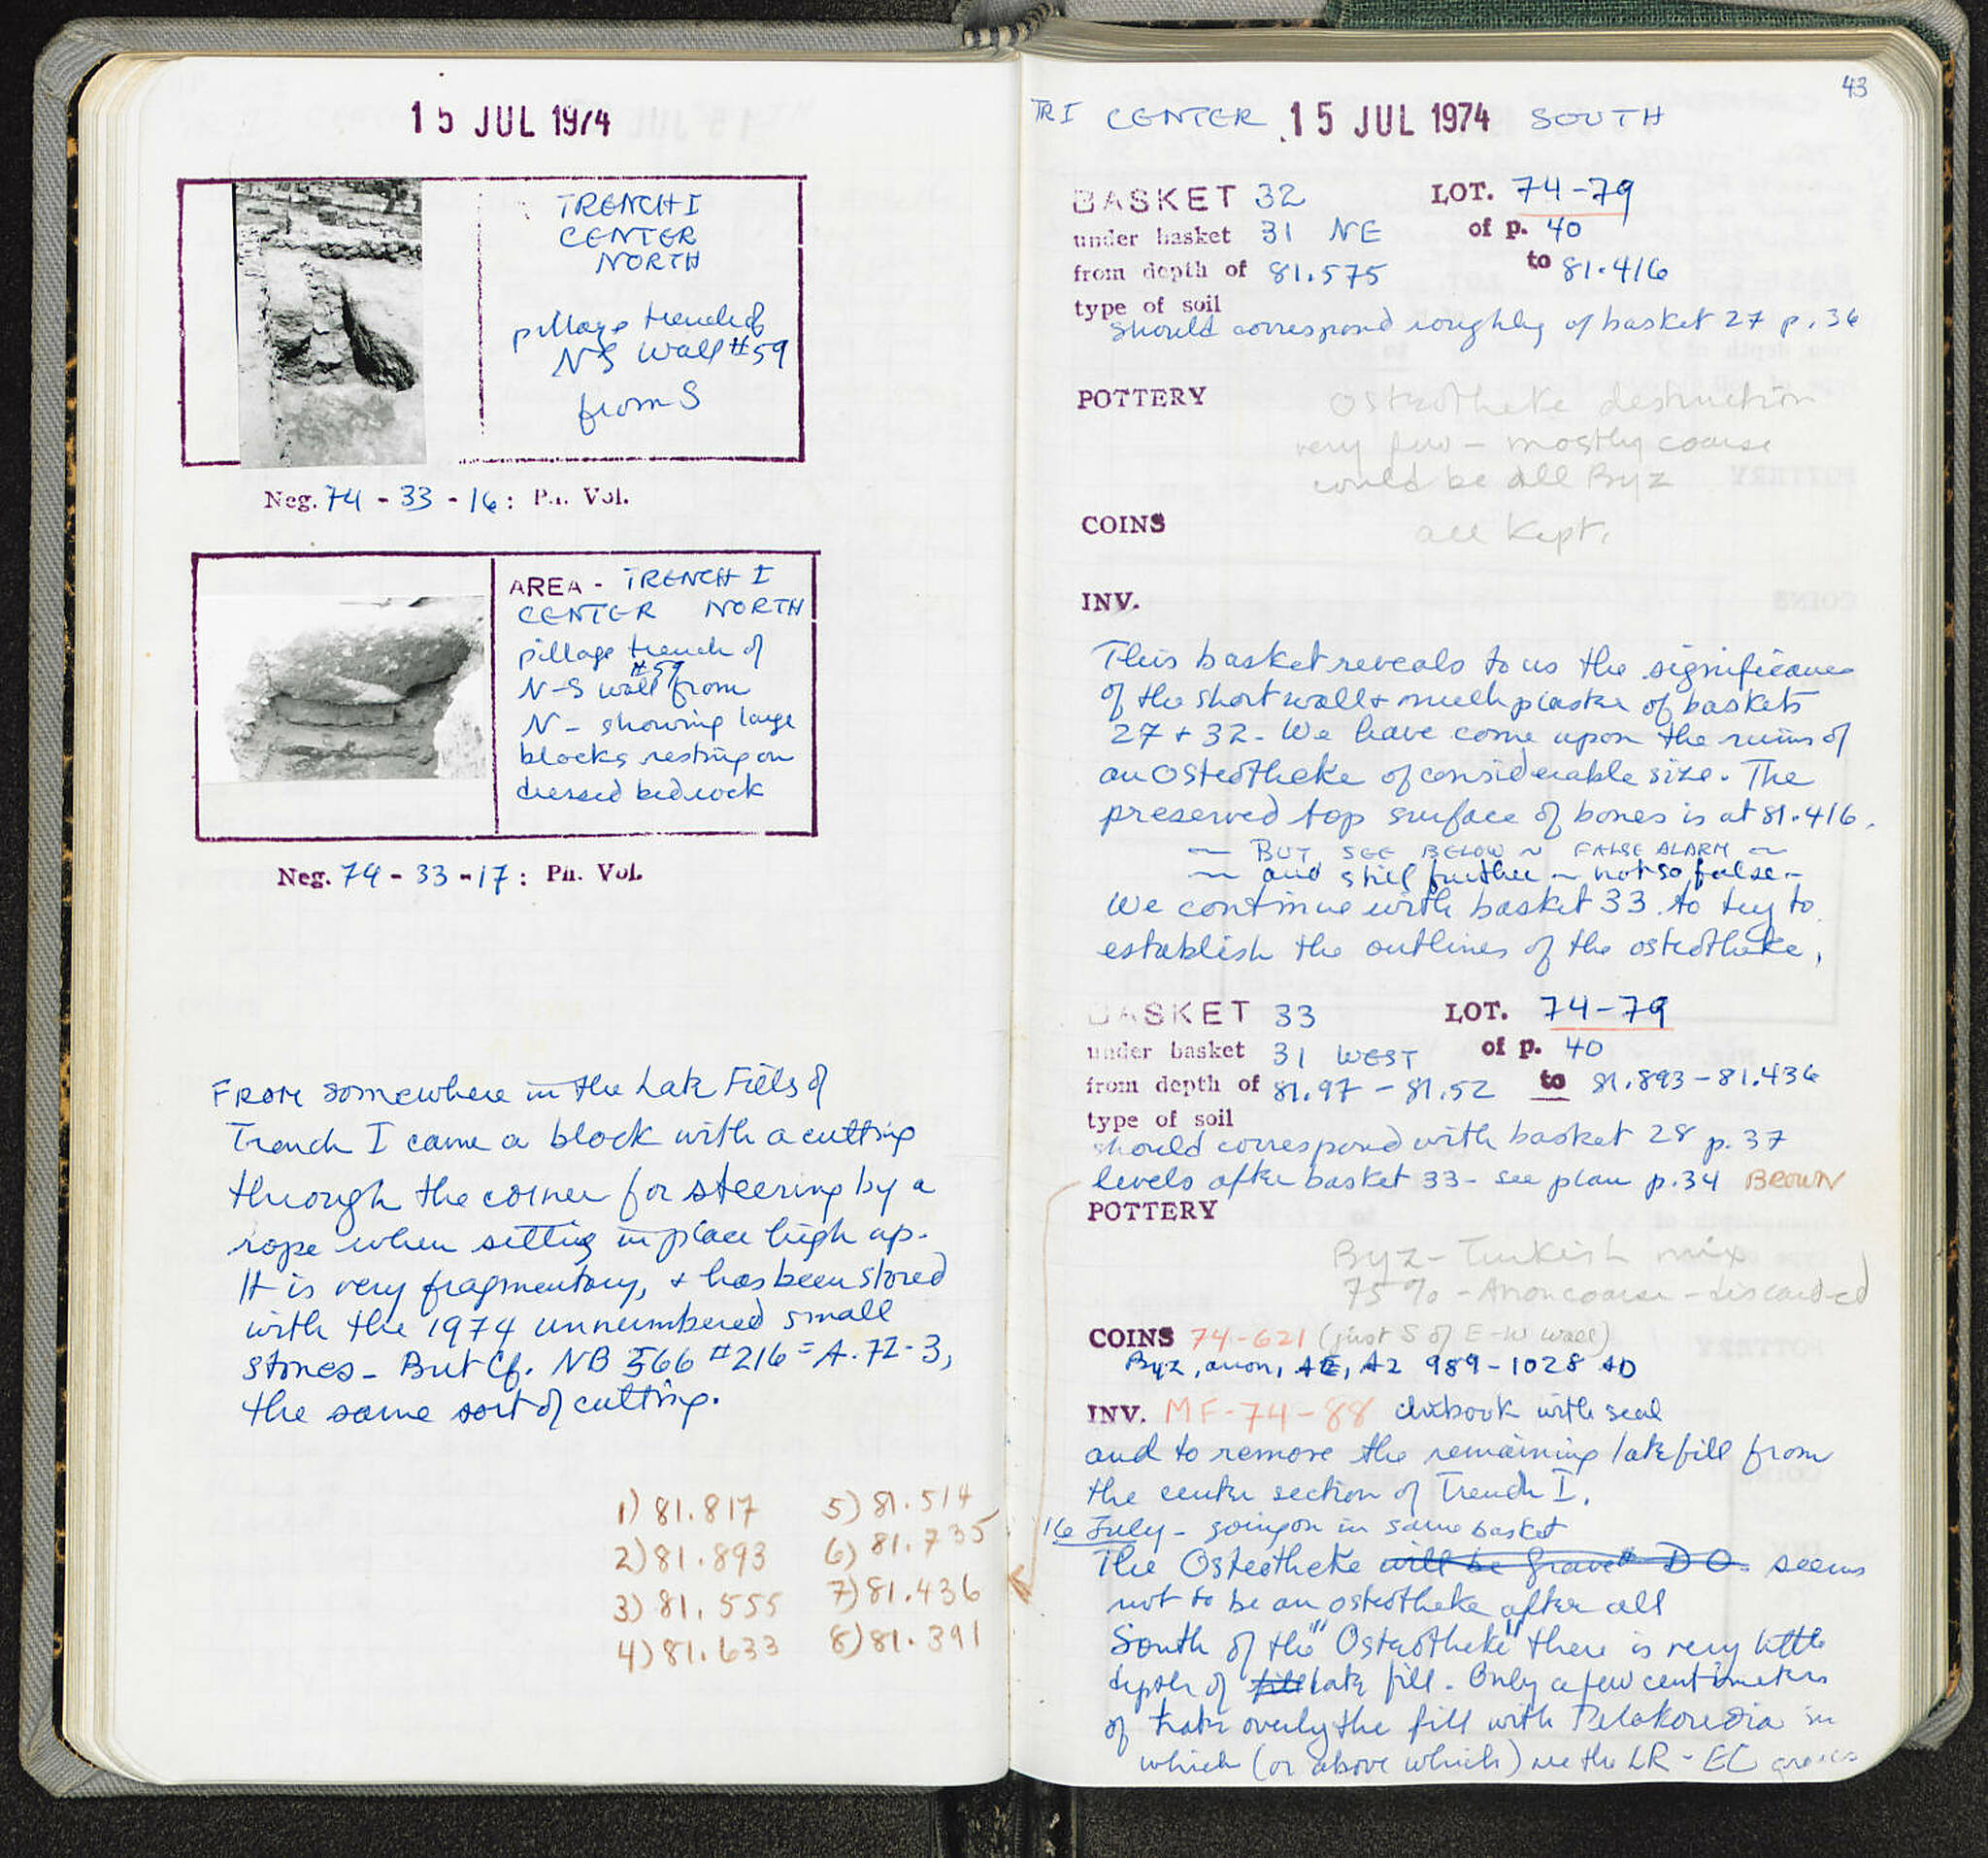 15 JUL 1974
TRENCH I
CENTER
NORTH
pillage trench of
N-S Wall #59
from S
Neg. 74 - 33 - 16: Ph. Vol.
AREA - TRENCH I
CENTER NORTH
pillage trench of
#59
N-S wall from
N - showing large
blocks resting on
dressed bedrock
Neg. 74 - 33 - 17: Ph. Vol.
FROM somewhere in the Late Fills of
Trench I came a block with a cutting
through the corner for steering by a
rope when setting in place high up.
It is very fragmentary, + has been stored
with the 1974 unnumbered small
stones - But Cf. NB 566 #216 = A.72-3,
the same sort of cutting.
1) 81.817 5) 81.514
2) 81.893 6) 81.735
3) 81.555 7) 81.436
4) 81.633 8) 81.391
43
TR I CENTER 15 JUL 1974 SOUTH
BASKET 32 LOT. 74-79
under basket 31 NE of p. 40
from depth of 81.575 to 81.416
type of soil
should correspond roughly of basket 27 p. 36
POTTERY Osteotheke destruction
very few - mostly coarse
would be all Byz
COINS all kept.
INV.
This basket reveals to us the significance
of the short wall + much plaster of baskets
27 + 32 - We have come upon the ruins of
an Osteotheke of considerable size. The
preserved top surface of bones is at 81.416.
~ BUT SEE BELOW ~ FALSE ALARM ~
~ and still further ~ not so false -
We continue with basket 33 to try to
establish the outlines of the osteotheke,
BASKET 33 LOT. 74-79
under basket 31 WEST of p. 40
from depth of 81.97 - 81.52 to 81.893 - 81.436
type of soil
should correspond with basket 28 p. 37
levels after basket 33 - see plan p.34 BROWN
POTTERY
Byz - Turkish mix
75% - Anoncoarse - discarded
COINS 74-621 (just S of E-W wall)
Byz, anon, AE, A2 989-1028 AD
INV. MF-74-88 with seal
and to remove the remaining late fill from
the center section of Trench I.
16 July - going on in same basket
The Osteotheke will be grave # D O. seems
not to be an osteotheke after all
South of the "Osteotheke" there is very little
depth of fill late fill. Only a few centimeters
of overly the fill with in
which (or above which) are the LR - EC graves